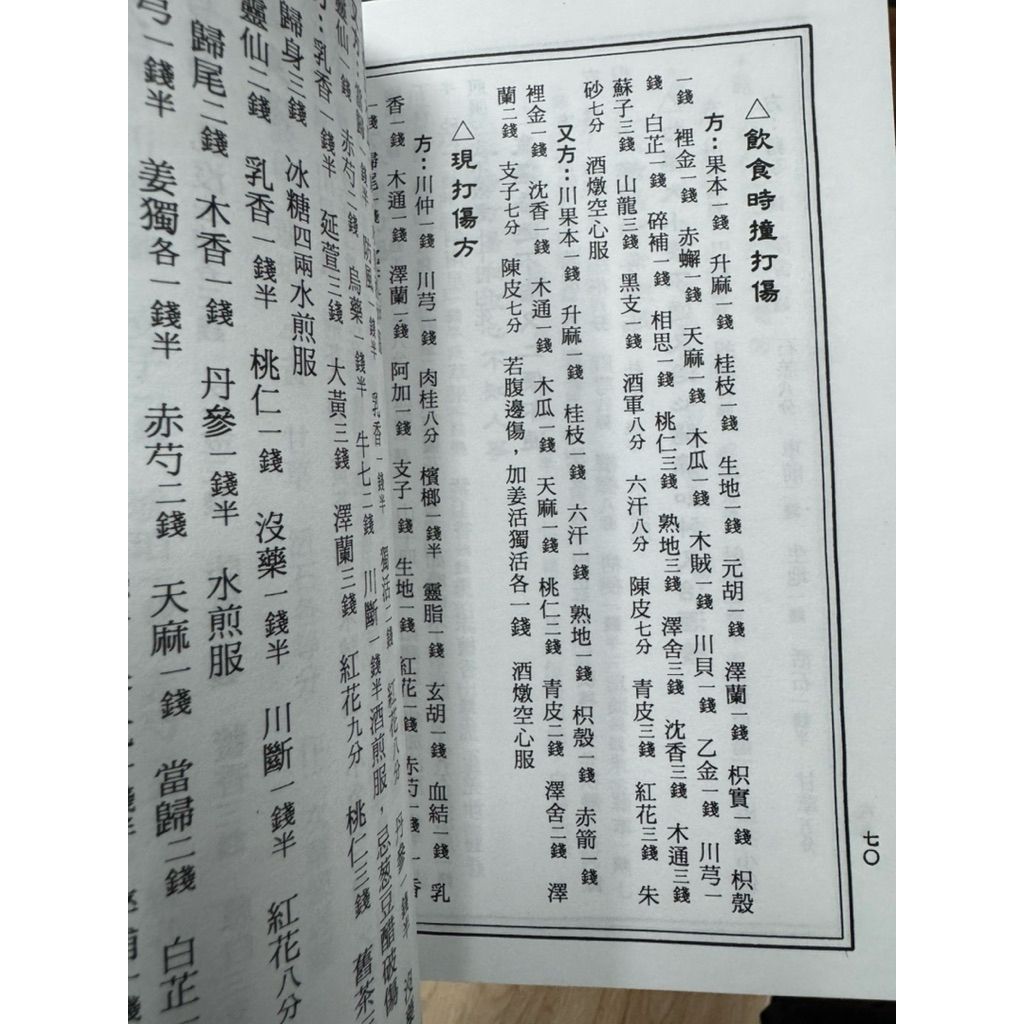 △飲食時撞打傷
方：果本一錢　升麻一錢　桂枝一錢　生地一錢　元胡一錢　澤蘭一錢　枳實一錢　枳殼
一錢　裡金一錢　赤蠏一錢　天麻一錢　木瓜一錢　木賊一錢　川貝一錢　乙金一錢　川芎一
錢　白芷一錢　碎補一錢　相思一錢　桃仁三錢　熟地三錢　澤舍三錢　沈香三錢　木通三錢
蘇子三錢　山龍三錢　黑支一錢　酒軍八分　六汗八分　陳皮七分　青皮三錢　紅花三錢　朱
砂七分　酒燉空心服
又方：川果本一錢　升麻一錢　桂枝一錢　六汗一錢　熟地一錢　枳殼一錢　赤箭一錢
裡金一錢　沈香一錢　木通一錢　木瓜一錢　天麻一錢　桃仁二錢　青皮二錢　澤舍二錢　澤
蘭二錢　支子七分　陳皮七分　若腹邊傷，加姜活獨活各一錢　酒燉空心服
△現打傷方
方：川仲一錢　川芎一錢　肉桂八分　檳榔一錢半　靈脂一錢　玄胡一錢　血結一錢　乳
香一錢　木通一錢　澤蘭一錢　阿加一錢　支子一錢　生地一錢　紅花一錢　赤芍一錢
七〇
烏藥一錢半　牛七二錢　川斷一錢半酒煎服，忌葱豆醋破傷
靈仙一錢　赤芍二錢
方：乳香一錢半　延萱三錢　大黃三錢　澤蘭三錢　紅花九分　桃仁三錢　舊茶
歸身三錢　冰糖四兩水煎服
靈仙二錢　乳香一錢半　桃仁一錢　沒藥一錢半　川斷一錢半　紅花八分
歸尾二錢　木香一錢　丹參一錢半　水煎服
芎一錢半　姜獨各一錢半　赤芍二錢　天麻一錢　當歸二錢　白芷一